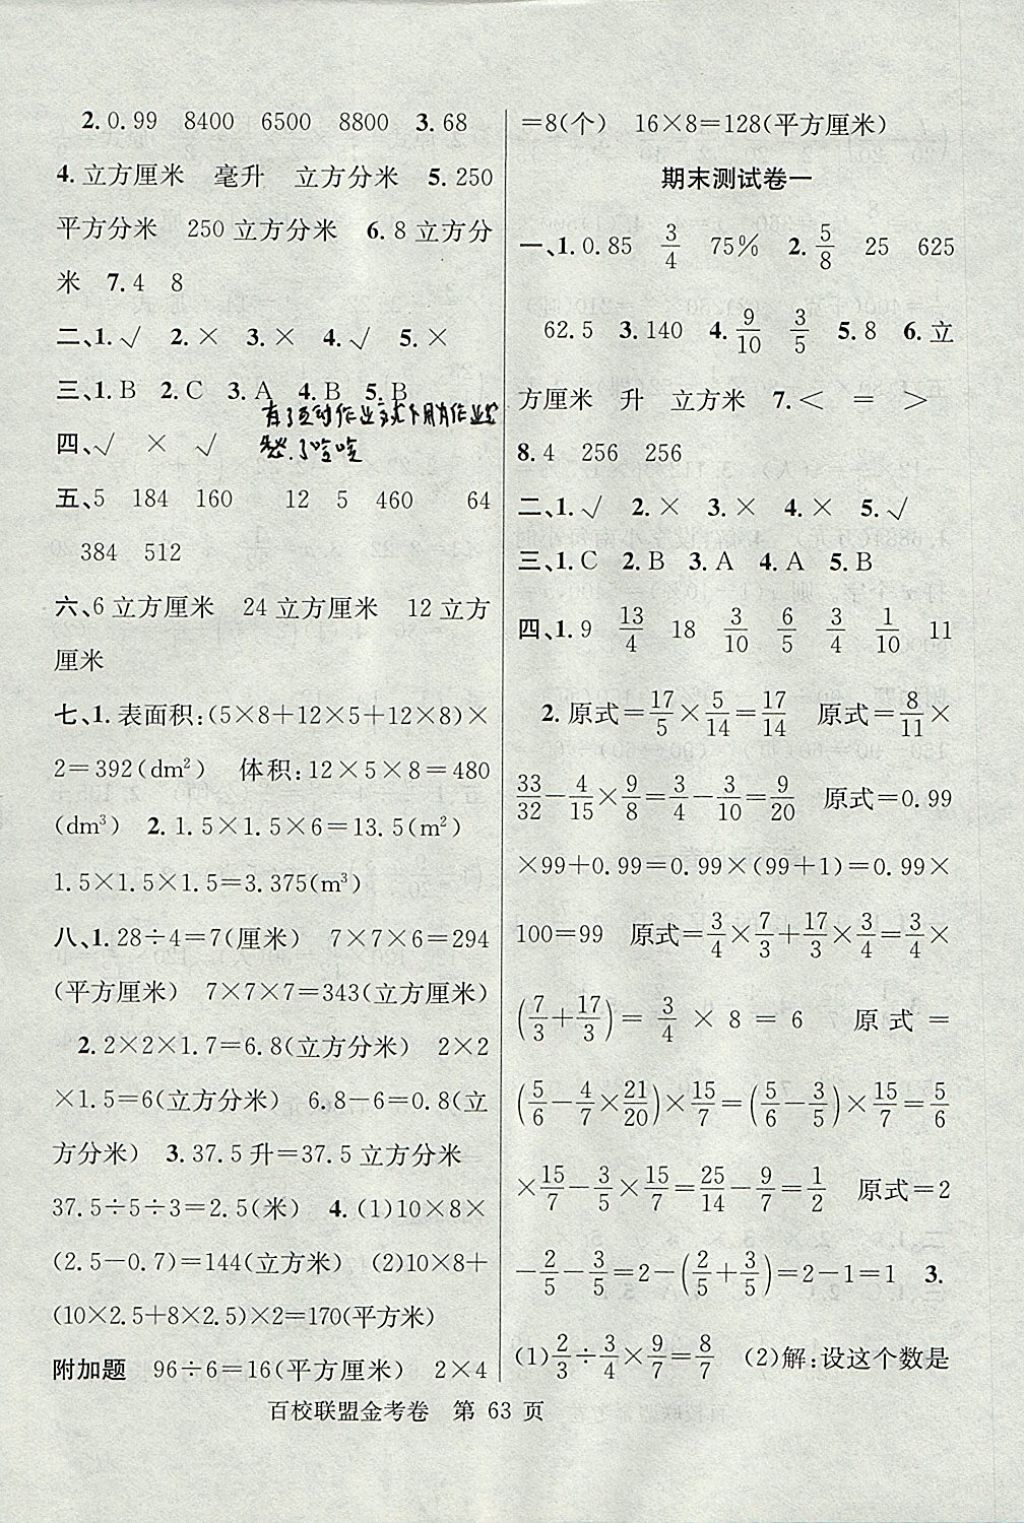 2.0.99 8400 6500 8800 3.68
4.立方厘米 毫升 立方分米 5.250
平方分米 250立方分米 6.8立方分
米 7.4 8
二、1.√ 2.× 3.× 4.√ 5.×
三、1.B 2.C 3.A 4.B 5.B
有了互动作业
四、√ × √
哈哈
五、5 184 160 12 5 460 64
384 512
六、6立方厘米 24立方厘米 12立方
厘米
七、1.表面积:(5×8+12×5+12×8)×
2=392(dm²) 体积:12×5×8=480
(dm³) 2.1.5×1.5×6=13.5(m²)
1.5×1.5×1.5=3.375(m³)
八、1.28÷4=7(厘米) 7×7×6=294
(平方厘米) 7×7×7=343(立方厘米)
2.2×2×1.7=6.8(立方分米) 2×2
×1.5=6(立方分米) 6.8-6=0.8(立
方分米) 3.37.5升=37.5立方分米
37.5÷5÷3=2.5(米) 4.(1)10×8×
(2.5-0.7)=144(立方米) (2)10×8+
(10×2.5+8×2.5)×2=170(平方米)
附加题 96÷6=16(平方厘米) 2×4
=8(个) 16×8=128(平方厘米)
期末测试卷一
一、1.0.85 3/4 75% 2.5/8 25 625
62.5 3.140 4.9/10 3/5 5.8 6.立
方厘米 升 立方米 7.< = >
8.4 256 256
二、1.√ 2.× 3.× 4.× 5.√
三、1.C 2.B 3.A 4.A 5.B
四、1.9 13/4 18 3/10 6/5 3/4 1/10 11
2.原式=17/5×5/14=17/14 原式=8/11×
33/32-4/15×9/8=3/4-3/10=9/20 原式=0.99
×99+0.99=0.99×(99+1)=0.99×
100=99 原式=3/4×7/3+17/3×3/4=3/4×
(7/3+17/3)=3/4×8=6 原式=
(5/6-4/7×21/20)×15/7=(5/6-3/5)×15/7=5/6
×15/7-3/5×15/7=25/14-9/7=1/2 原式=2
-2/5-3/5=2-(2/5+3/5)=2-1=1 3.
(1)2/3÷3/4×9/7=8/7 (2)解:设这个数是
百校联盟金考卷 第 63 页